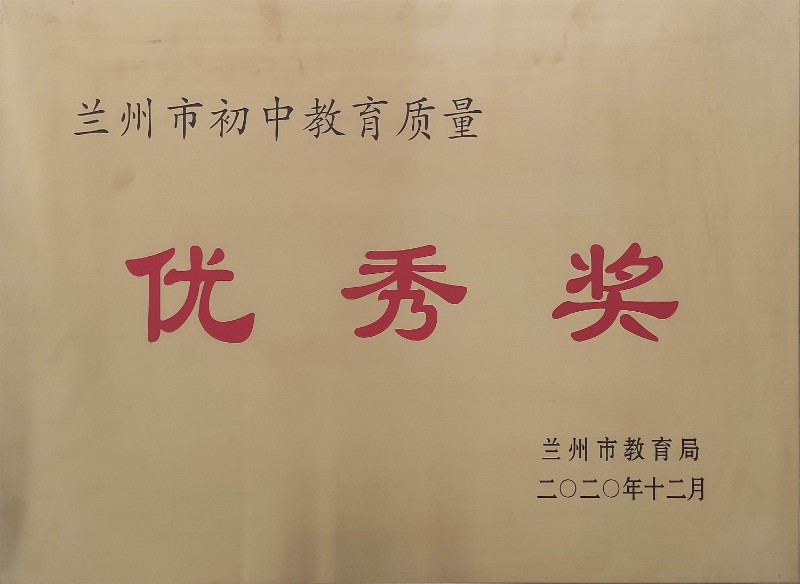 兰州市初中教育质量
优秀奖
兰州市教育局
二〇二〇年十二月